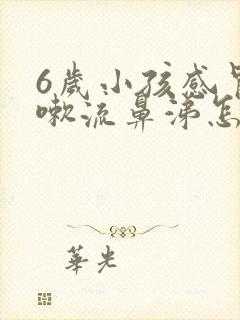 6歲小孩感
嗽流鼻涕怎
華光